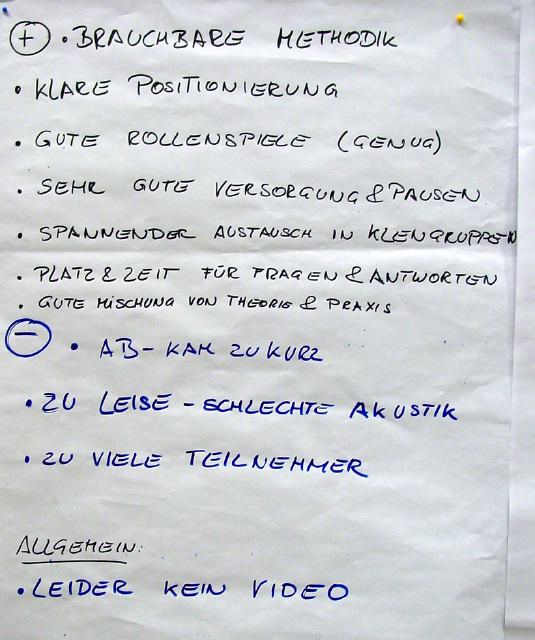 + • BRAUCHBARE METHODIK
• KLARE POSITIONIERUNG
• GUTE ROLLENSPIELE (GENUG)
• SEHR GUTE VERSORGUNG & PAUSEN
• SPANNENDER AUSTAUSCH IN KLENGRUPPEN
• PLATZ & ZEIT FÜR FRAGEN & ANTWORTEN
• GUTE MISCHUNG VON THEORIE & PRAXIS
− • AB - KAM ZU KURZ
• ZU LEISE - SCHLECHTE AKUSTIK
• ZU VIELE TEILNEHMER
ALLGEMEIN:
• LEIDER KEIN VIDEO